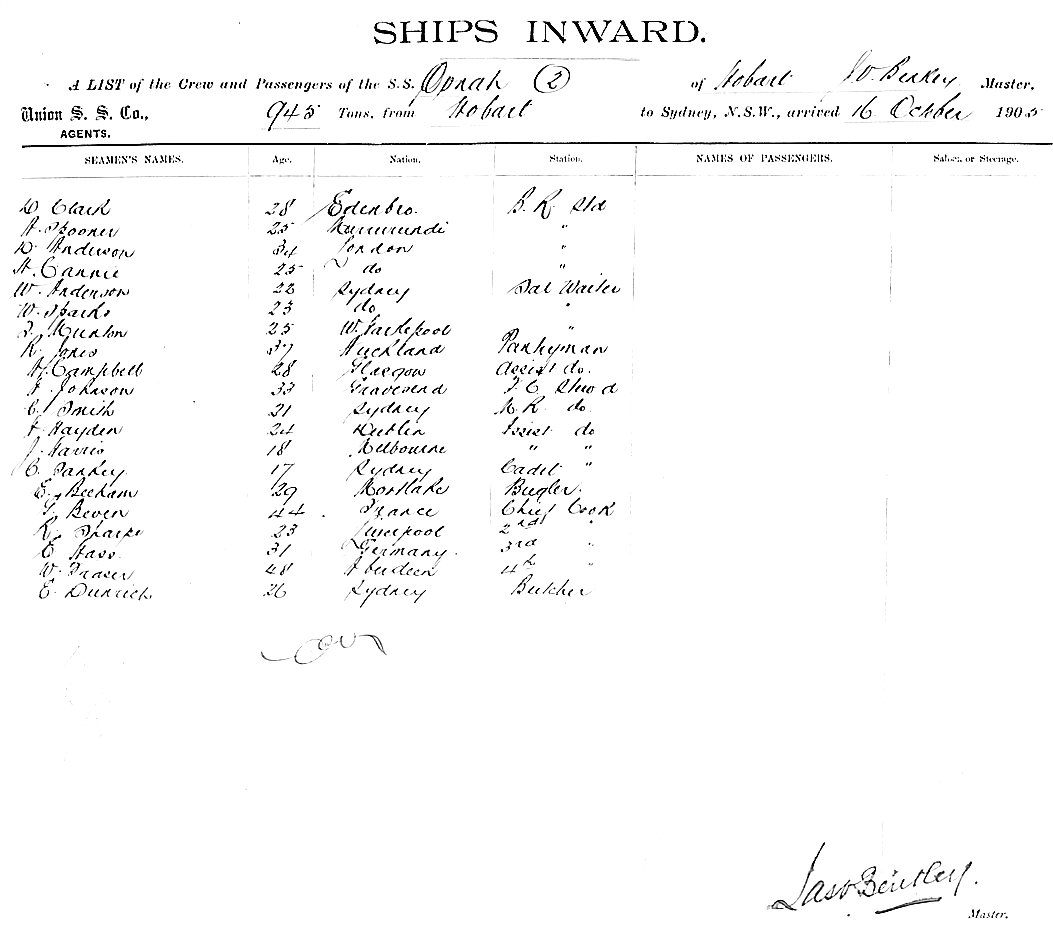 SHIPS INWARD.
A LIST of the Crew and Passengers of the S.S. Oonah (2) of Hobart Master,
Union S. S. Co., 945 Tons, from Hobart to Sydney, N.S.W., arrived 16 October 1905
AGENTS.
SEAMEN'S NAMES. Age. Nation. Station. NAMES OF PASSENGERS. Saloon or Steerage.
D. Clark 28 Edenbro. B. R. Std
A. Spooner 25 "
D. Anderson 34 London "
A. Cannie 25 do "
W. Anderson 22 Sydney Sal Waiter
W. Sparks 23 do "
Munton 25 W. Hartlepool "
R. Jones 37 Auckland Pantryman
A. Campbell 28 Glasgow Assist do.
F. Johnson 33 Gravesend F. C. Stewd
C. Smith 21 Sydney M. R. do.
F. Hayden 24 Dublin Assist do
J. Harris 18 Melbourne " "
C. Pankey 17 Sydney Cadet "
E. Beecham 29 Mortlake Bugler.
Beven 44 France Chief Cook
R. Sharpe 23 Liverpool 2nd "
E. Hass 31 Germany. 3rd "
W. Fraser 48 Aberdeen 4th "
E. Dunrich 26 Sydney Butcher
Over
Jas W Bentley.
Master.